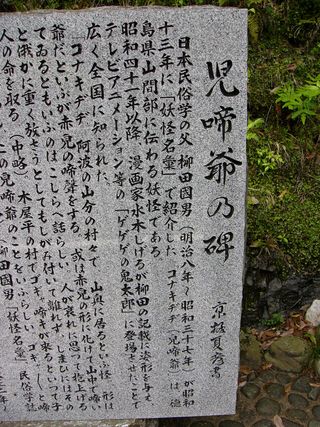 児啼爺の碑
京極夏彦書
日本民俗学の父 柳田國男(明治八年〜昭和三十七年)が昭和
十三年に「妖怪名彙」で紹介した コナキヂヂ(児啼爺)は 徳
島県山間部に伝わる妖怪である
昭和四十一年以降 漫画家水木しげるが柳田の記載に姿形を与え
テレビアニメーション等の「ゲゲゲの鬼太郎」に登場させたことで
広く全国に知られた
「コナキヂヂ 阿波の山分の村々で 山奥に居るといふ怪 形は
爺だといふが赤児の啼聲をする 或は赤児の形に化けて山中で啼い
てゐるともいふのはこしらへ話らしい 人が哀れに思って抱上げる
と俄かに重く放さうとしてもしがみ付いて離れず しまひにはその
人の命を取る
(中略) 木屋平の村でゴギャ啼きが来るといって子